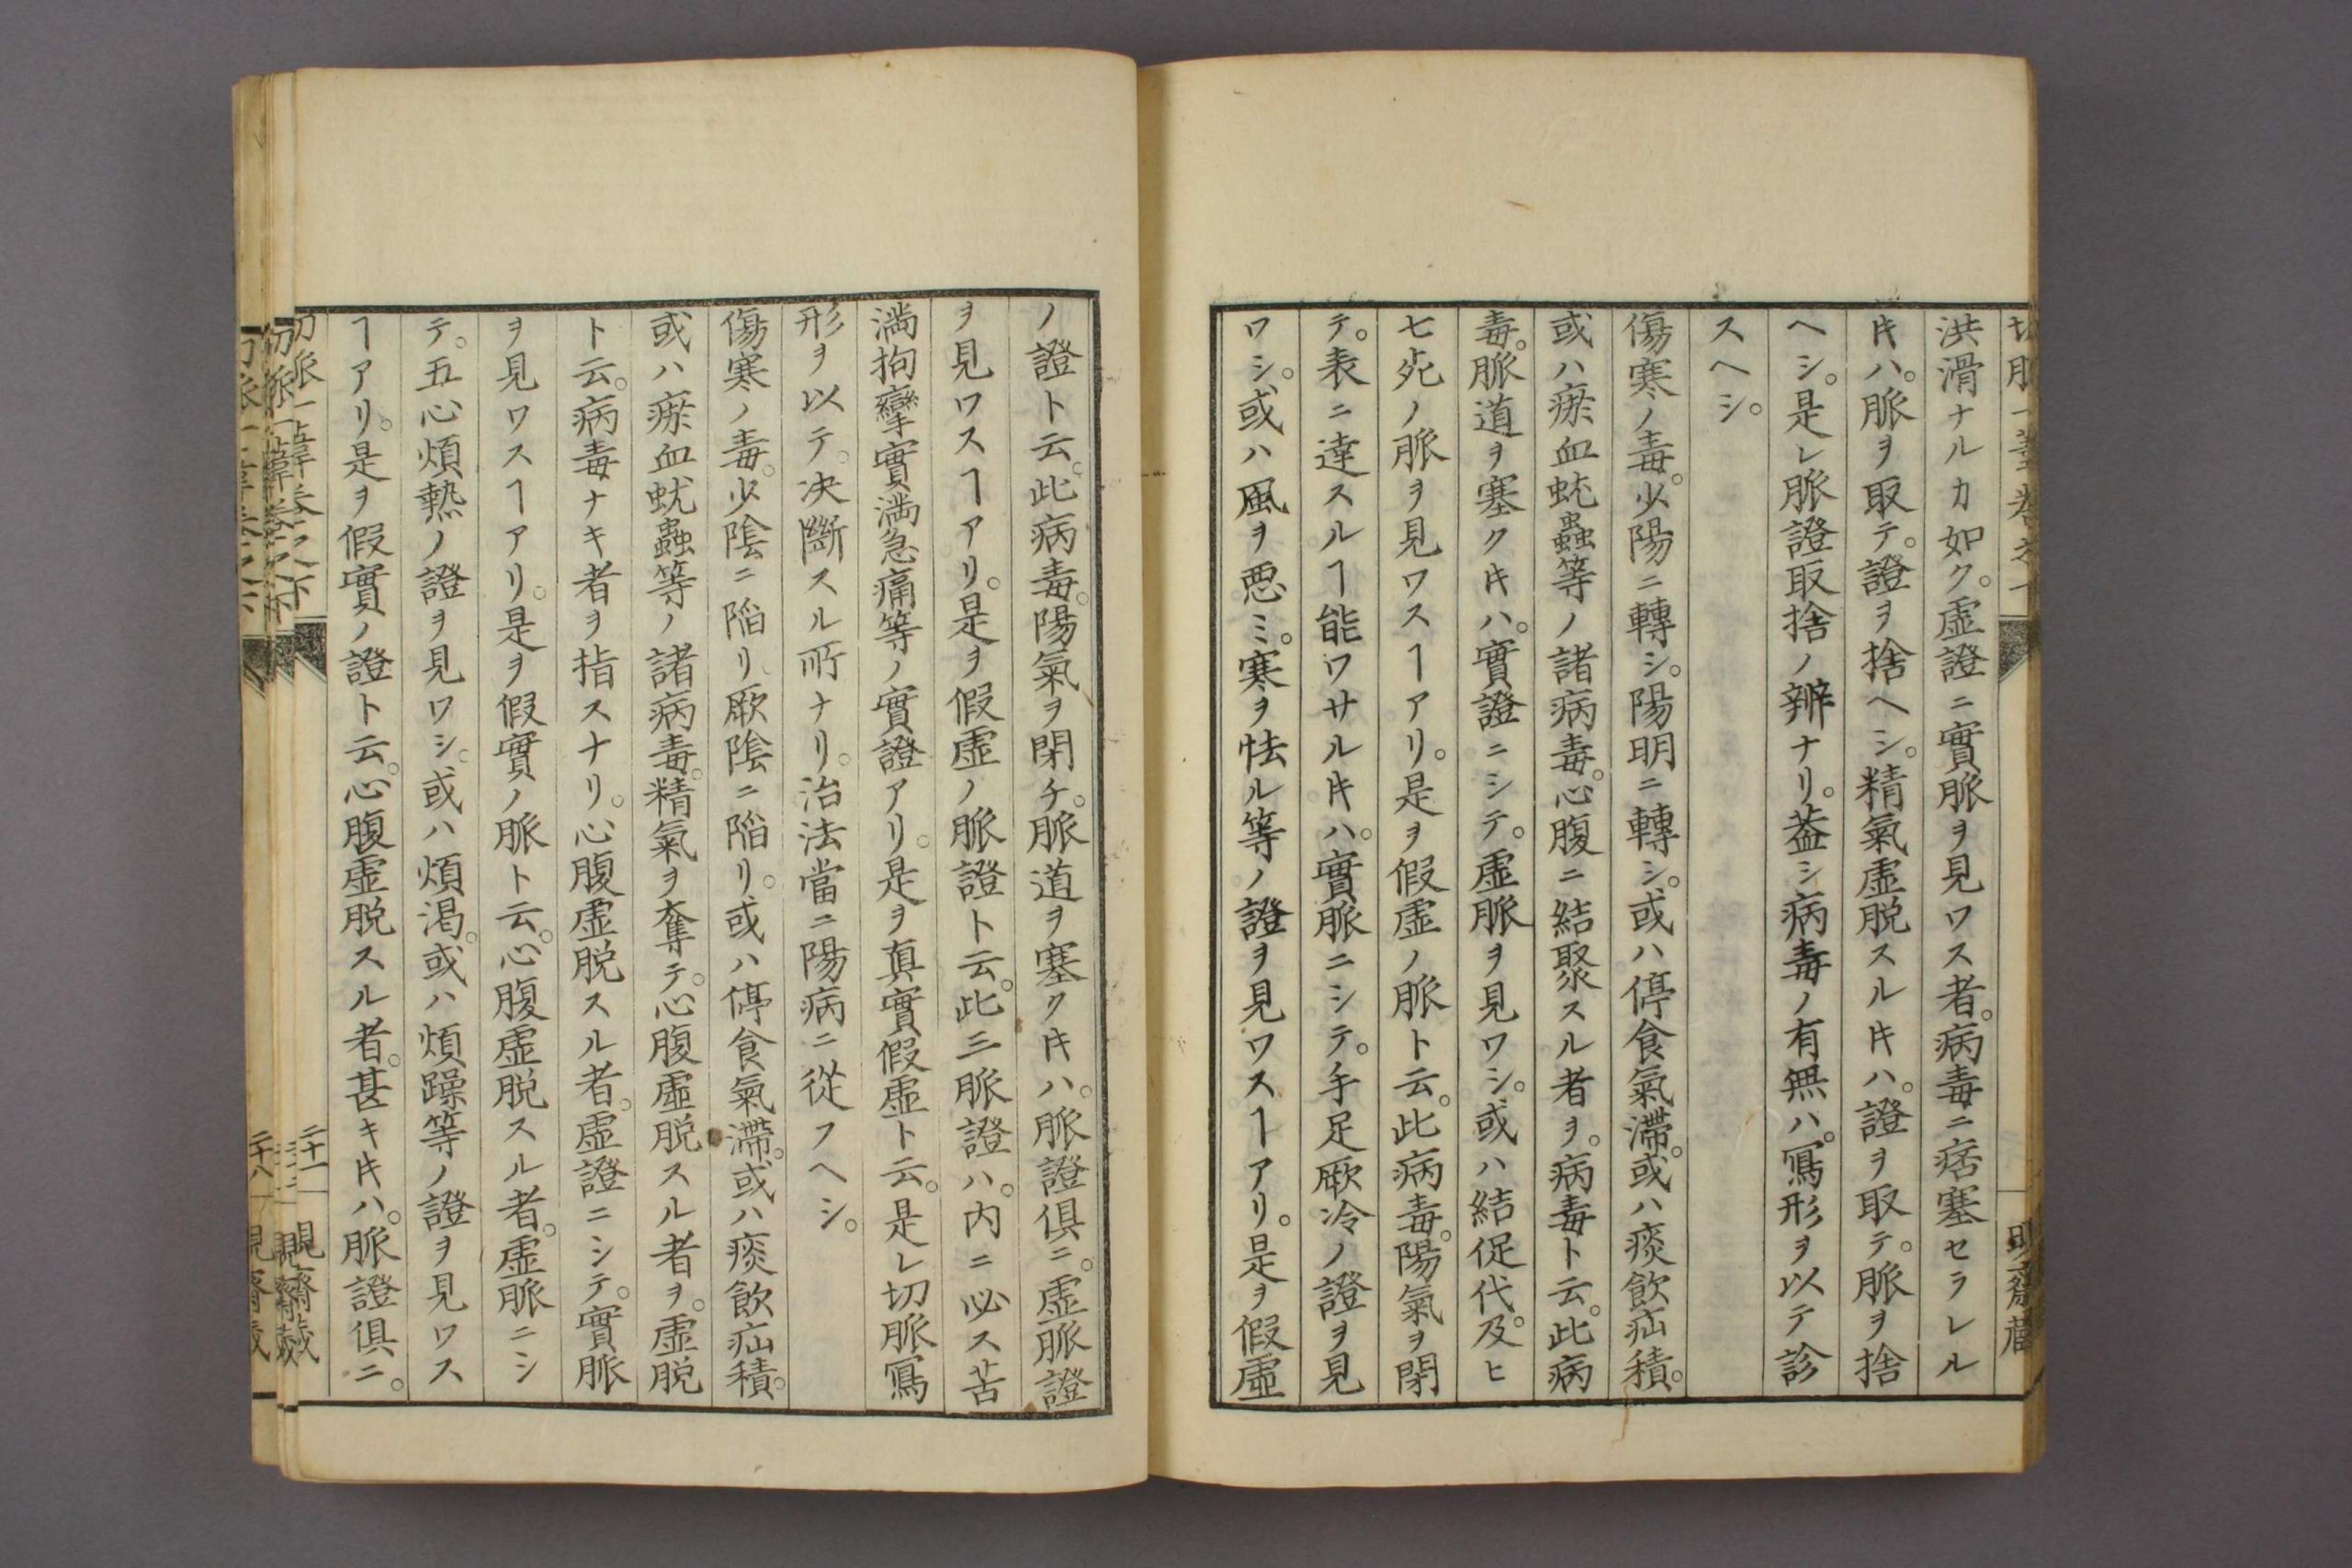 洪滑ナルカ如ク。虚證ニ實脈ヲ見ワス者。病毒ニ痞塞セラレル
𪜈ハ。脈ヲ取テ。證ヲ捨ヘシ。精氣虚脱スル𪜈ハ。證ヲ取テ。脈ヲ捨
ヘシ。是レ脈證取捨ノ辨ナリ。葢シ病毒ノ有無ハ。寫形ヲ以テ診
スヘシ。
傷寒ノ毒。少陽ニ轉シ。陽明ニ轉シ。或ハ停食氣滞。或ハ痰飲疝積。
或ハ瘀血蚘蟲等ノ諸病毒。心腹ニ結聚スル者ヲ。病毒ト云。此病
毒。脈道ヲ塞ク𪜈ハ。實證ニシテ。虚脈ヲ見ワシ。或ハ結促代。及ヒ
七死ノ脈ヲ見ワスヿアリ。是ヲ假虚ノ脈ト云。此病毒。陽氣ヲ閉
テ。表ニ達スルヿ能ワサル𪜈ハ。實脈ニシテ。手足厥冷ノ證ヲ見
ワシ。或ハ風ヲ悪ミ。寒ヲ怯ル等ノ證ヲ見ワスヿアリ。是ヲ假虚
ノ證ト云。此病毒。陽氣ヲ閉チ。脈道ヲ塞ク𪜈ハ。脈證俱ニ。虚脈證
ヲ見ワスヿアリ。是ヲ假虚ノ脈證ト云。此三脈證ハ。内ニ必ス苦
満拘攣實満急痛等ノ實證アリ。是ヲ真實假虚ト云。是レ切脈寫
形ヲ以テ。决斷スル所ナリ。治法當ニ陽病ニ從フヘシ。
傷寒ノ毒。少陰ニ陥リ。厥陰ニ陥リ。或ハ停食氣滯。或ハ痰飲疝積。
或ハ瘀血蚘蟲等ノ諸病毒。精氣ヲ奪テ。心腹虚脱スル者ヲ。虚脱
ト云。病毒ナキ者ヲ指スナリ。心腹虚脱スル者。虚證ニシテ。實脈
ヲ見ワスヿアリ。是ヲ假實ノ脈ト云。心腹虚脱スル者。虚脈ニシ
テ。五心煩熱ノ證ヲ見ワシ。或ハ煩渇。或ハ煩躁等ノ證ヲ見ワス
ヿアリ。是ヲ假實ノ證ト云。心腹虚脱スル者。甚キ𪜈ハ。脈證俱ニ。
二十一